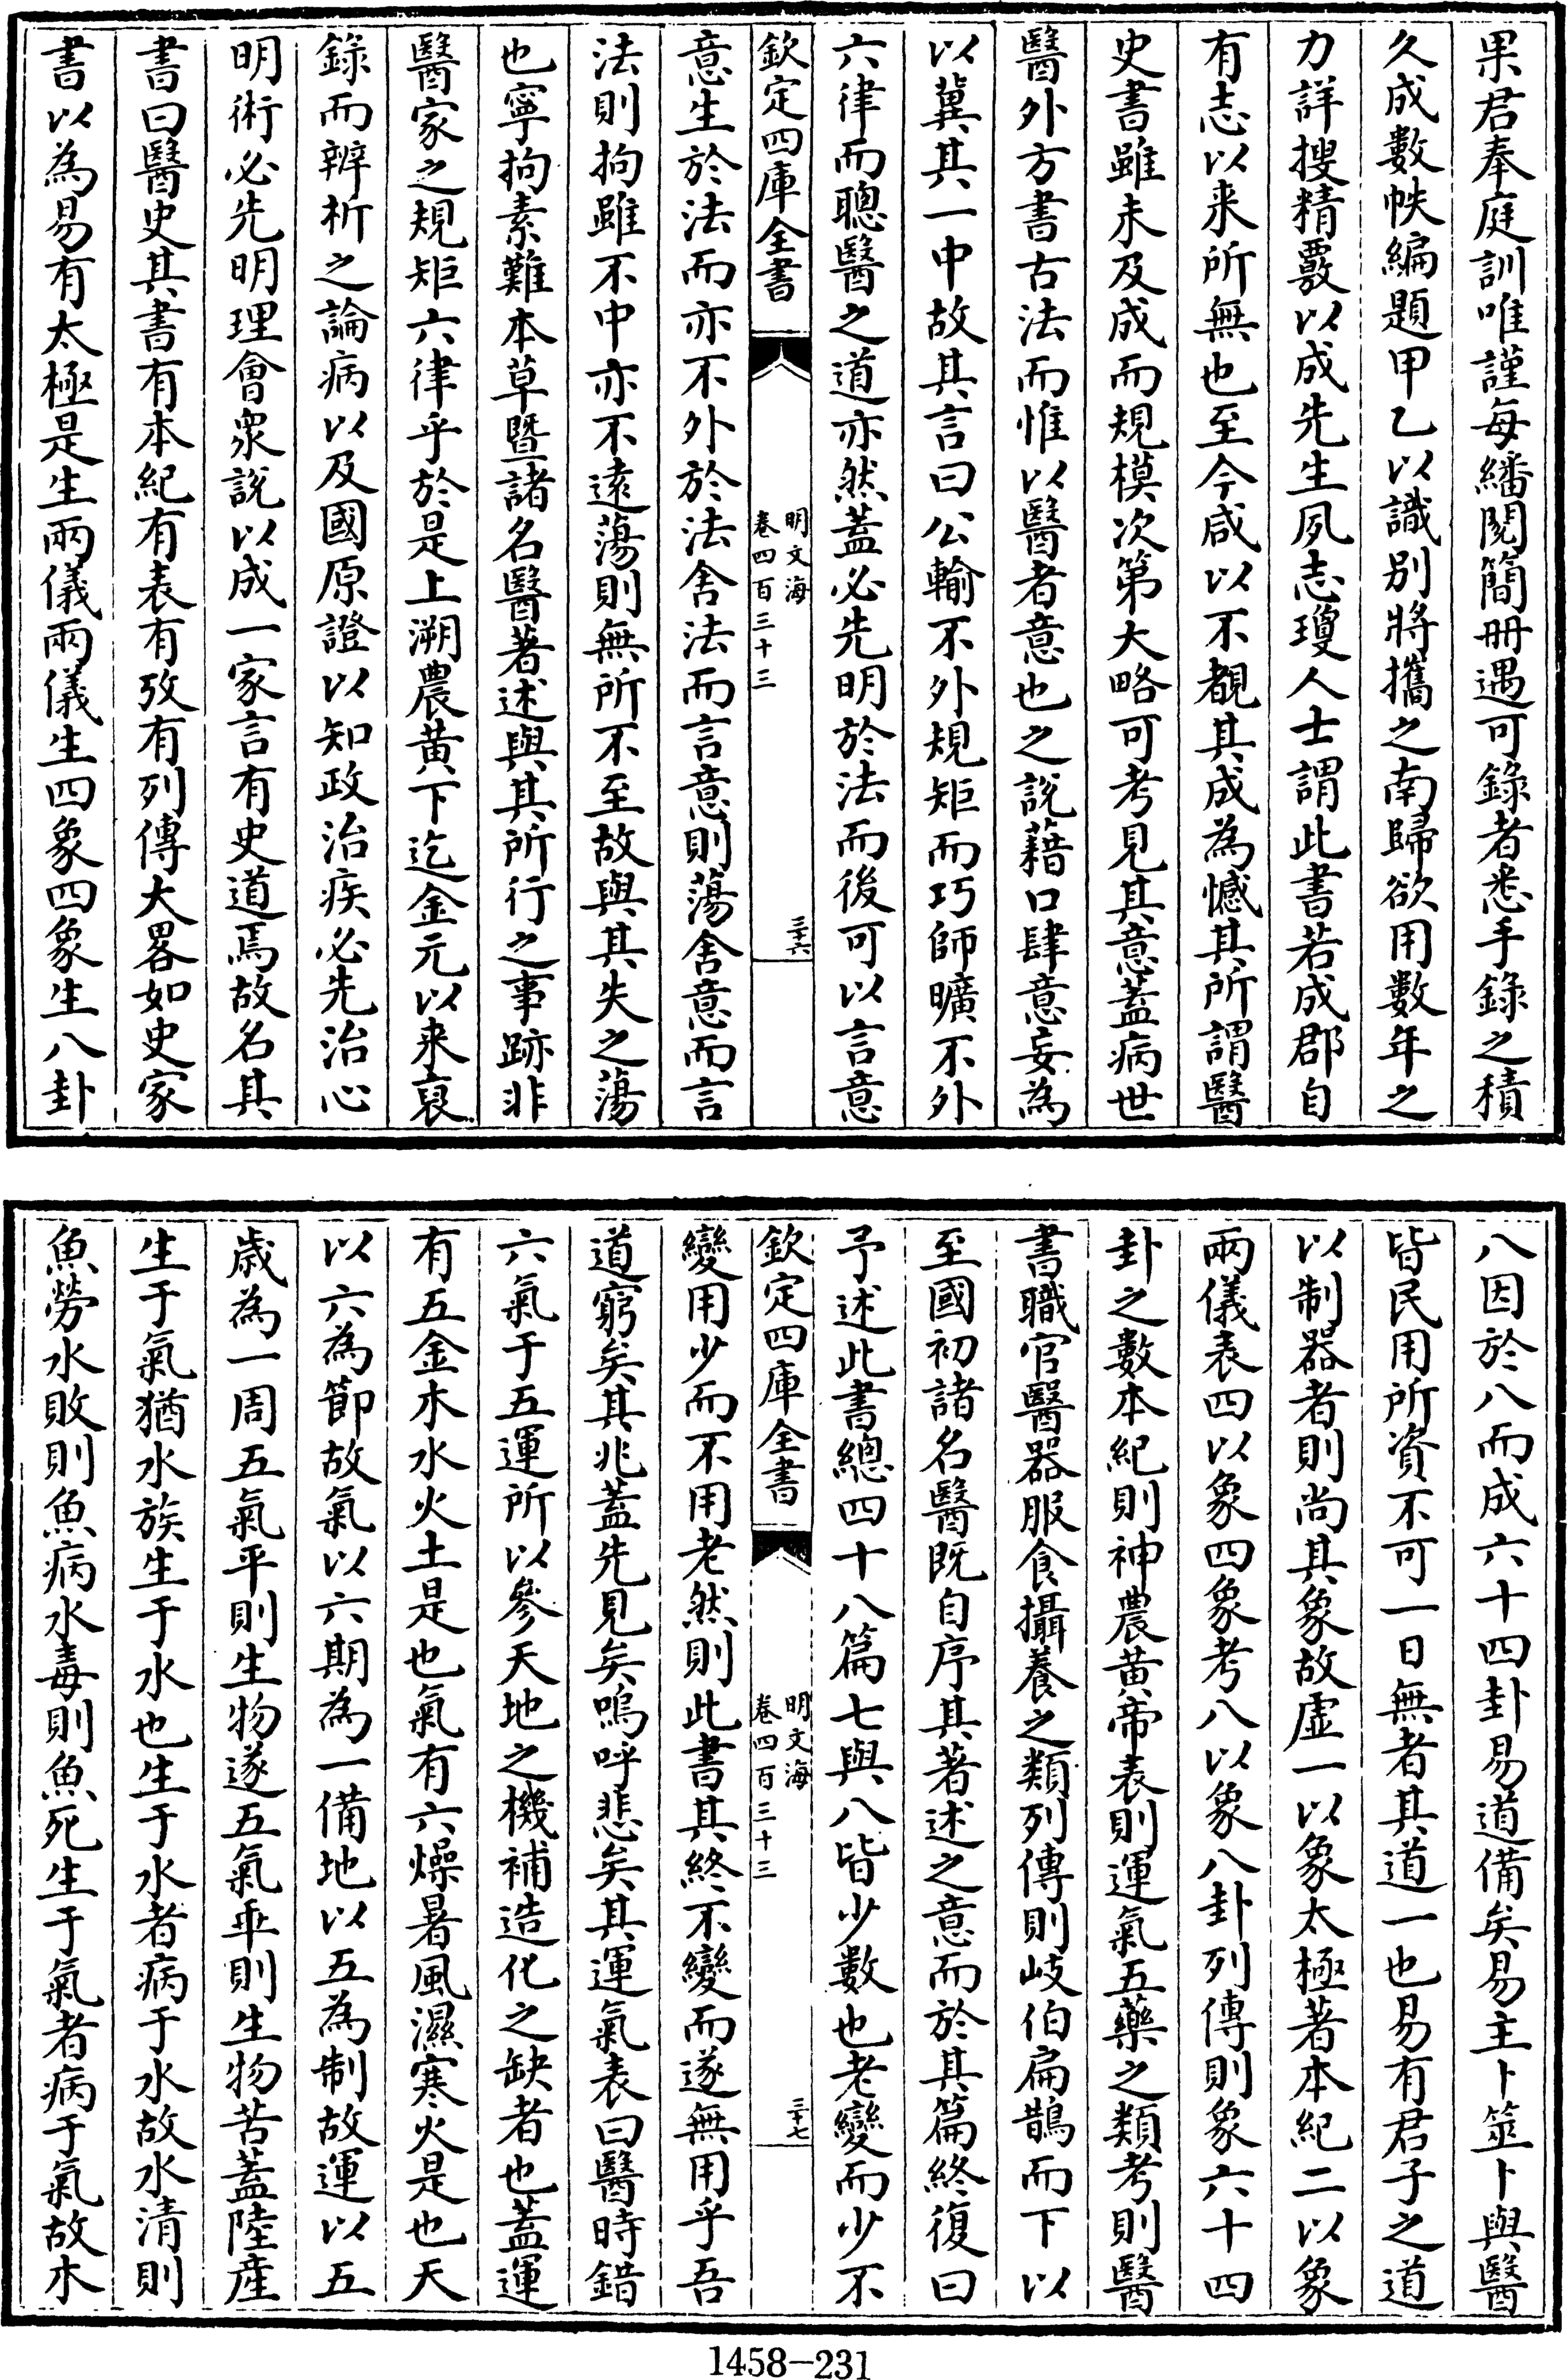 果君奉庭訓唯謹每繙閱簡冊遇可錄者悉手錄之積
久成數帙編題甲乙以識別將攜之南歸欲用數年之
力詳搜精覈以成先生夙志瓊人士謂此書若成郡自
有志以来所無也至今咸以不覩其成為憾其所謂醫
史書雖未及成而規模次第大略可考見其意蓋病世
醫外方書古法而惟以醫者意也之說藉口肆意妄為
以冀其一中故其言曰公輸不外規矩而巧師曠不外
六律而聰醫之道亦然蓋必先明於法而後可以言意
欽定四庫全書
明文海
卷四百三十三
三十六
意生於法而亦不外於法舍法而言意則蕩舍意而言
法則拘雖不中亦不遠蕩則無所不至故與其失之蕩
也寧拘素難本草暨諸名醫著述與其所行之事跡非
醫家之規矩六律乎於是上溯農黄下迄金元以来裒
錄而辨析之論病以及國原證以知政治疾必先治心
明術必先明理會衆說以成一家言有史道焉故名其
書曰醫史其書有本紀有表有攷有列傳大畧如史家
書以為易有太極是生兩儀兩儀生四象四象生八卦
八因於八而成六十四卦易道備矣易主卜筮卜與醫
皆民用所資不可一日無者其道一也易有君子之道
以制器者則尚其象故虚一以象太極著本紀二以象
兩儀表四以象四象考八以象八卦列傳則象六十四
卦之數本紀則神農黄帝表則運氣五藥之類考則醫
書職官醫器服食攝養之類列傳則岐伯扁鵲而下以
至國初諸名醫既自序其著述之意而於其篇終復曰
予述此書總四十八篇七與八皆少數也老變而少不
欽定四庫全書
明文海
卷四百三十三
三十七
變用少而不用老然則此書其終不變而遂無用乎吾
道窮矣其兆蓋先見矣嗚呼悲矣其運氣表曰醫時錯
六氣于五運所以參天地之機補造化之缺者也蓋運
有五金木水火土是也氣有六燥暑風濕寒火是也天
以六為節故氣以六期為一備地以五為制故運以五
歲為一周五氣平則生物遂五氣乖則生物苦蓋陸産
生于氣猶水族生于水也生于水者病于水故水清則
魚勞水敗則魚病水毒則魚死生于氣者病于氣故木
1458-231